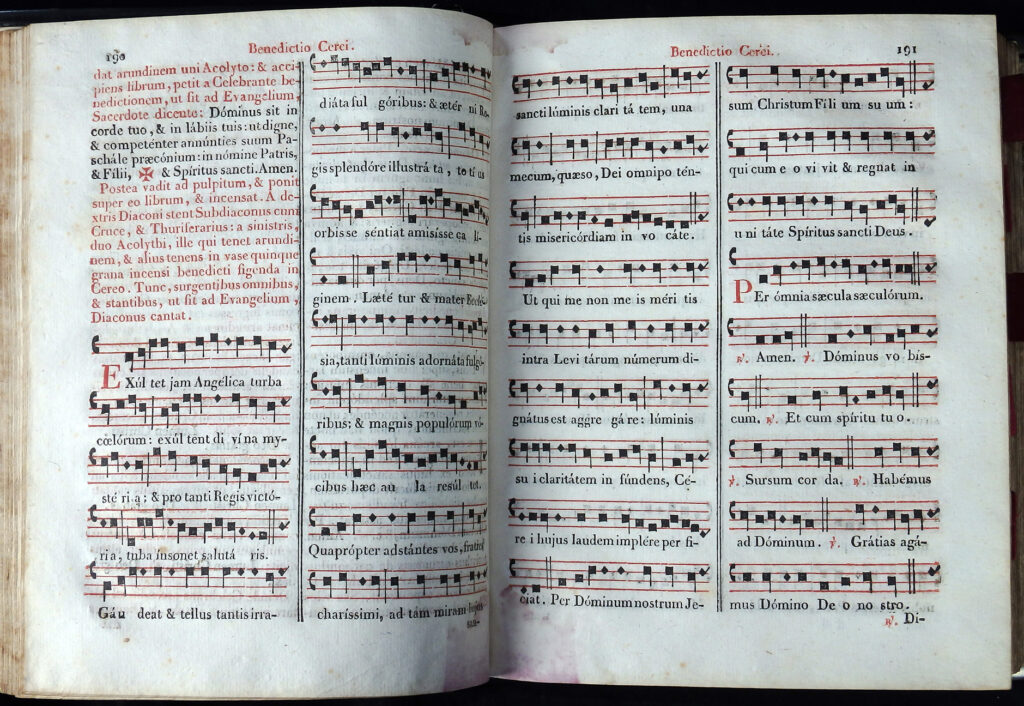 190
Benedictio Cerei.
dat arundinem uni Acolyto: & acci-
piens librum, petit a Celebrante be-
nedictionem, ut fit ad Evangelium,
Sacerdote dicente: Dóminus sit in
corde tuo, & in lábiis tuis: ut digne,
& competénter annúnties suum Pa-
schále præcónium: in nómine Patris,
& Fílii, ✠ & Spíritus sancti. Amen.
Postea vadit ad pulpitum, & ponit
super eo librum, & incensat. A de-
xtris Diaconi stent Subdiaconus cum
Cruce, & Thuriferarius: a sinistris,
duo Acolythi, ille qui tenet arundi-
nem, & alius tenens in vase quinque
grana incensi benedicti figenda in
Cereo. Tunc, surgentibus omnibus,
& stantibus, ut fit ad Evangelium,
Diaconus cantat.
EXúl tet jam Angélica turba
cœlórum: exúl tent di ví na my-
sté ri a; & pro tanti Regis victó-
ria, tuba ínsonet salutá ris.
Gáu deat & tellus tantis irra-
diáta ful góribus: & ætér ni Re-
gis splendóre illustrá ta, to tí us
orbis se séntiat amisísse ca lí-
ginem. Læté tur & mater Ecclé-
sia, tanti lúminis adornáta fulgó-
ribus: & magnis populórum vó-
cibus hæc au la resúl tet.
Quaprópter adstántes vos, fratres
charíssimi, ad tam miram hujus
san-
Benedictio Cerei.
191
sancti lúminis clari tá tem, una
mecum, quæso, Dei omnipo tén-
tis misericórdiam in vo cáte.
Ut qui me non me is méri tis
intra Levi tárum númerum di-
gnátus est aggre gá re: lúminis
su i claritátem in fúndens, Cé-
re i hujus laudem implére per fi-
ciat. Per Dóminum nostrum Je-
sum Christum Fíli um su um:
qui cum e o vi vit & regnat in
u ni táte Spíritus sancti Deus.
PEr ómnia sæcula sæculórum.
℟. Amen. ℣. Dóminus vo bis-
cum. ℟. Et cum spíritu tu o.
℣. Sursum cor da. ℟. Habémus
ad Dóminum. ℣. Grátias agá-
mus Dómino De o no stro.
℟. Di-